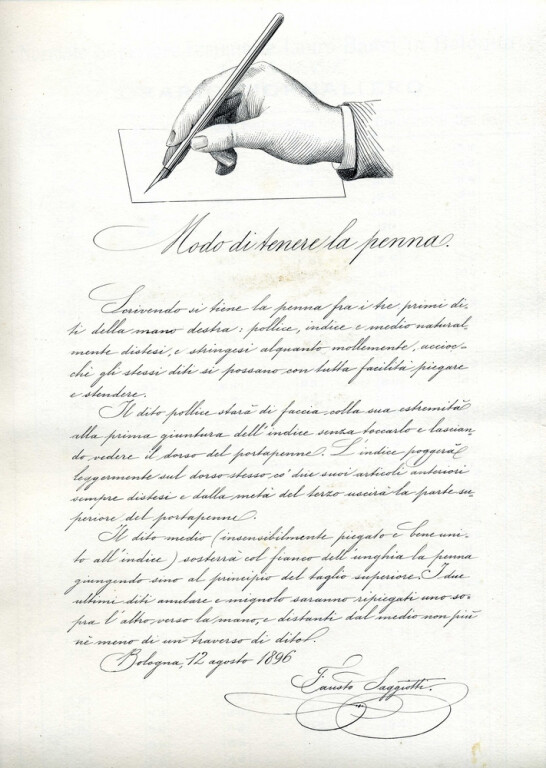 Modo di tenere la penna.
Scrivendo si tiene la penna fra i tre primi di=
ti della mano destra: pollice, indice e medio natural,
mente distesi, e stringesi alquanto mollemente, accioc=
chè gli stessi diti si possano con tutta facilità piegare
e stendere.
Il dito pollice starà di faccia colla sua estremità
alla prima giuntura dell'indice senza toccarlo e lascian=
do vedere il dorso del portapenne. L'indice poggerà
leggermente sul dorso stesso, co' due suoi articoli anteriori
sempre distesi e dalla metà del terzo uscirà la parte su=
periore del portapenne.
Il dito medio (insensibilmente piegato e bene uni=
to all'indice) sosterrà col fianco dell'unghia la penna
giungendo sino al principio del taglio superiore. I due
ultimi diti anulare e mignolo saranno ripiegati uno so=
pra l'altro, verso la mano, e distanti dal medio non più
nè meno di un traverso di dito.
Bologna, 12 agosto 1896
Fausto Saggiotti.